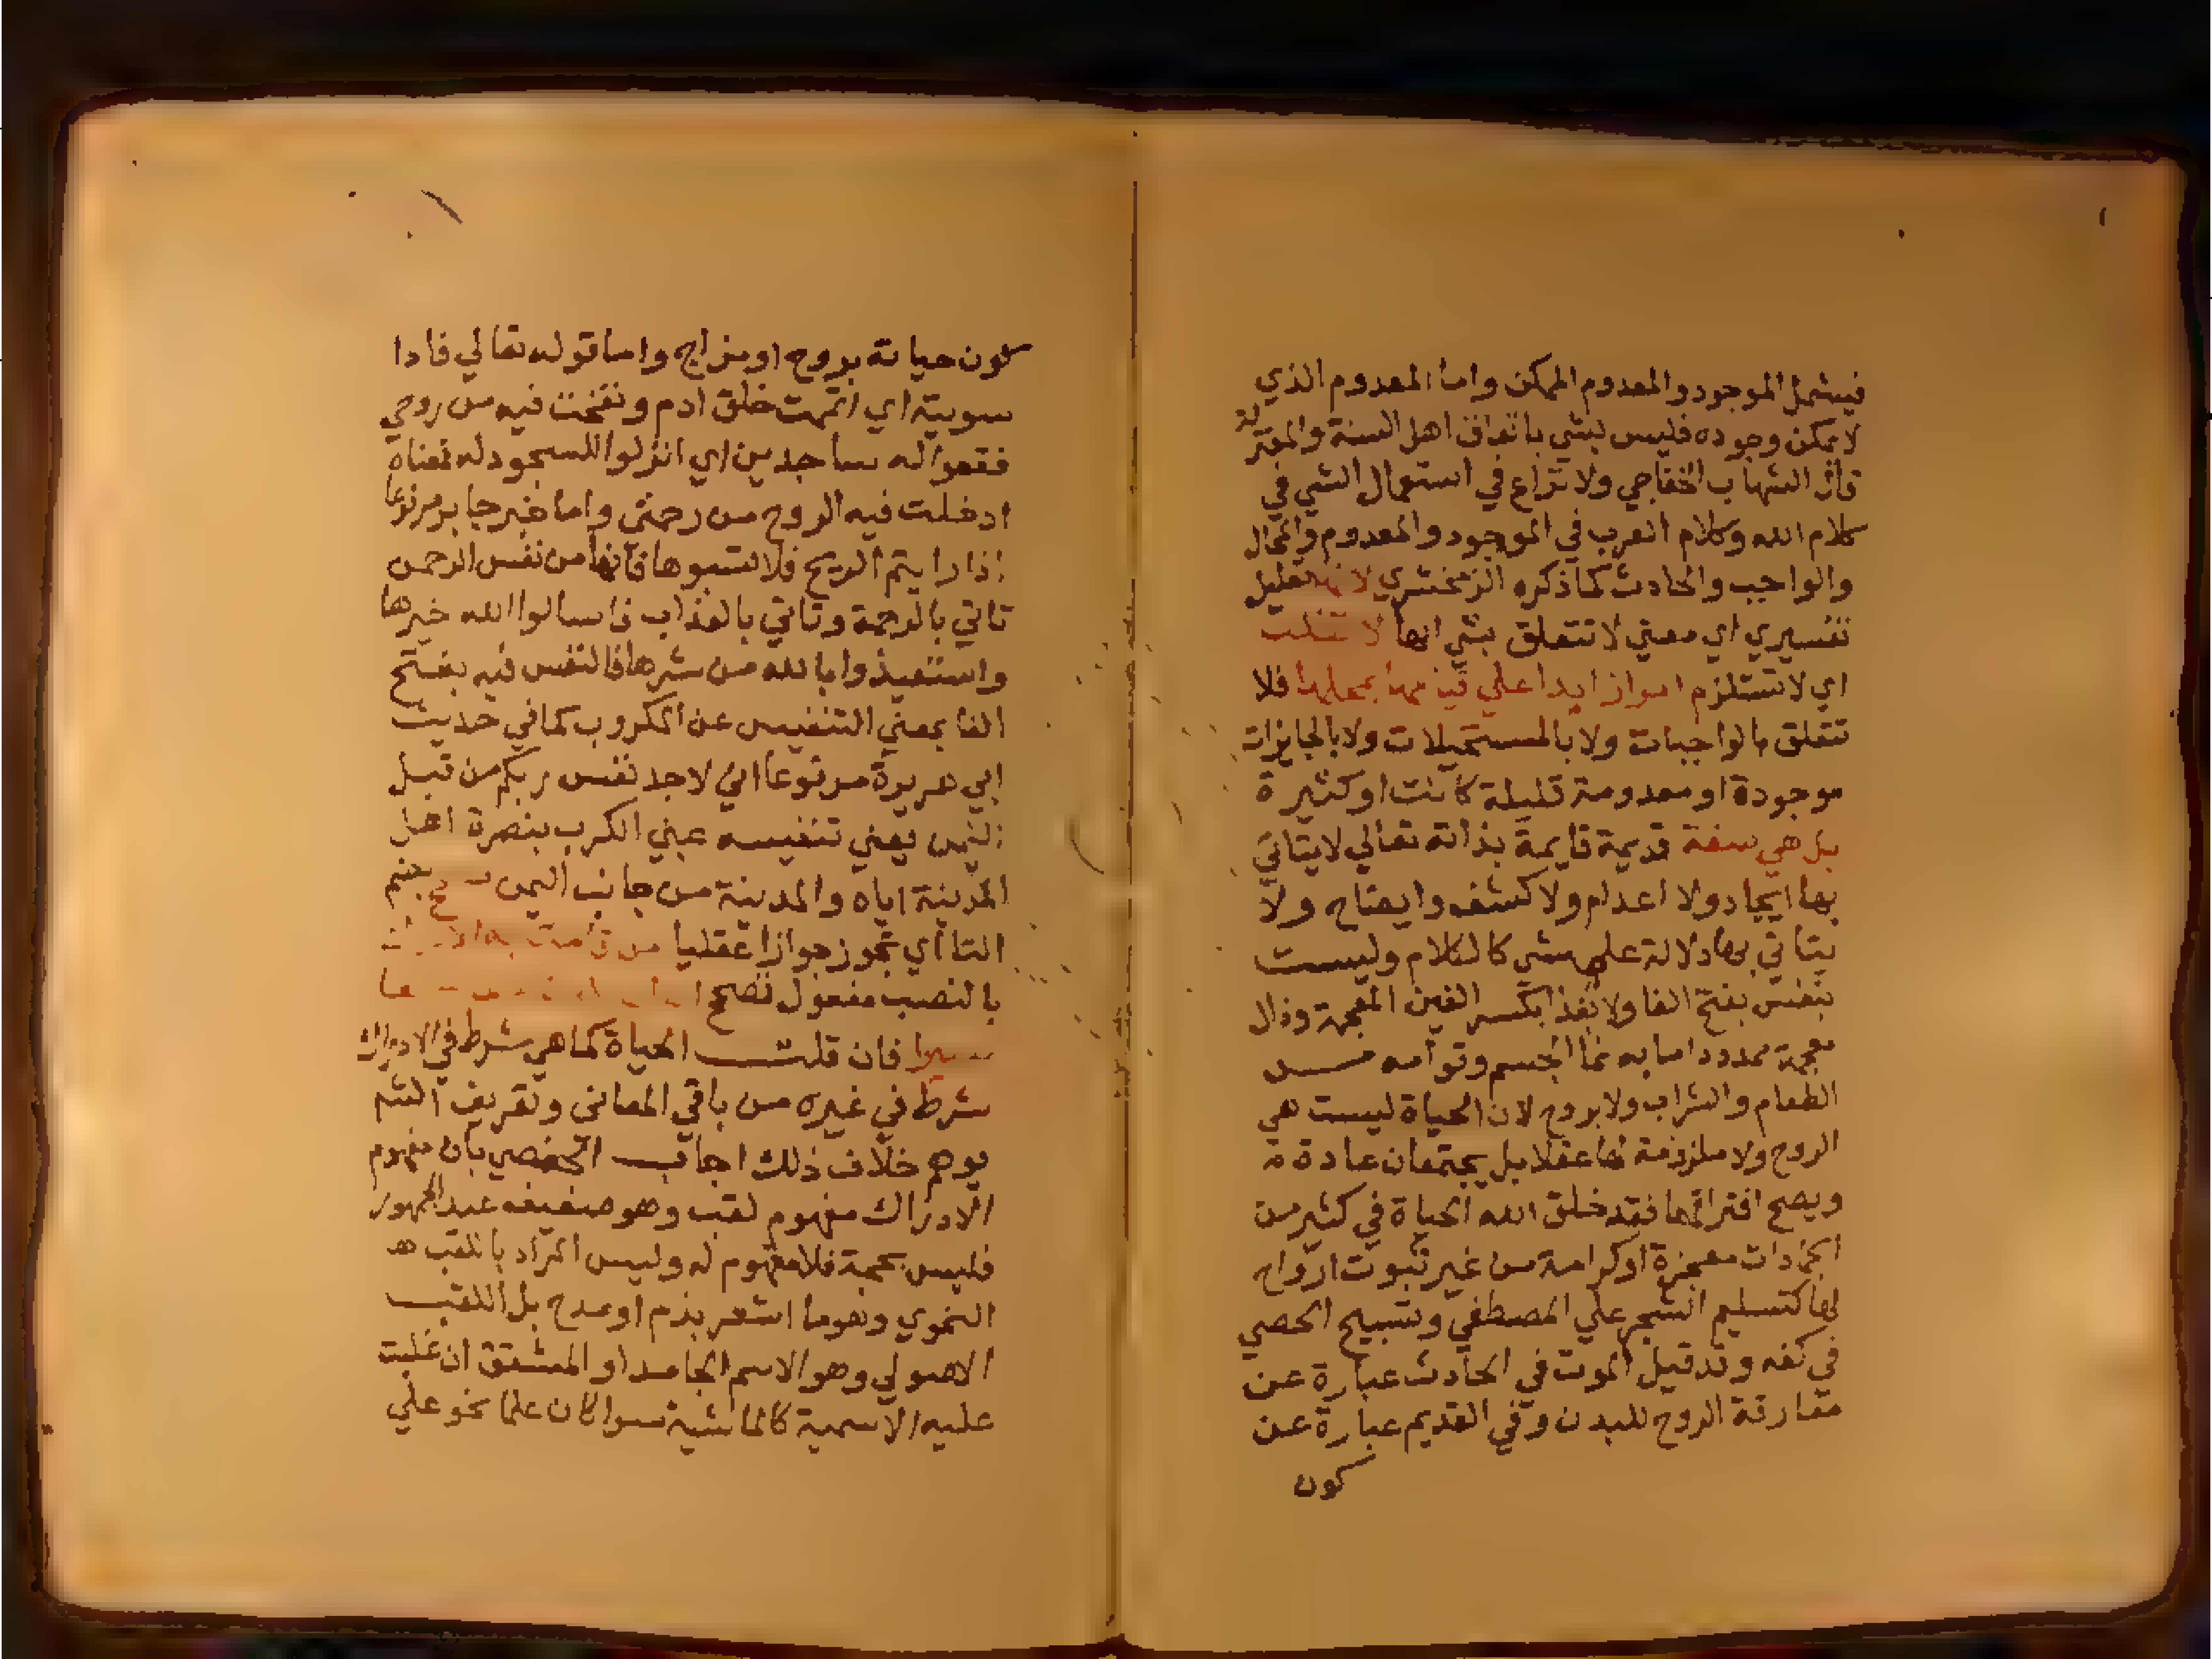 فيشمل الموجود والمعدوم الممكن واما المعدوم الذي
لا يمكن وجوده فليس بشي باتفاق اهل السنة والمعتزلة
قال الشهاب الخفاجي ولا نزاع في استعمال الشي في
كلام الله وكلام العرب في الموجود والمعدوم والمحال
والواجب والحادث كما ذكره الزمخشري لانها تعليل
تفسيري اي معني لا تتعلق بشي انها لا تطلب
اي لا تستلزم امرا زايدا علي قيامها بمحلها فلا
تتعلق بالواجبات ولا بالمستحيلات ولا بالجايزات
موجودة او معدومة قليلة كانت او كثيرة
بل هي صفة قديمة قايمة بذاته تعالي لا يتاتي
بها ايجاد ولا اعدام ولا كشف وايضاح ولا
يتاتي بها دلالة علي شي كالكلام وليست
بنفس بفتح الفا ولا بغذا بكسر الغين المعجمة وذال
معجمة ممدود ما به نما الجسم وقوامه من
الطعام والشراب ولا بروح لان الحياة ليست هي
الروح ولا ملازمة لها عقلا بل يجتمعان عادة
ويصح افتراقهما فقد خلق الله الحياة في كثير من
الجمادات معجزة او كرامة من غير ثبوت ارواح
لها كتسليم الشجر علي المصطفي وتسبيح الحصي
في كفه وقد قيل الموت في الحادث عبارة عن
مفارقة الروح للبدن وفي القديم عبارة عن
كون
كون حياته بروح او مزاج واما قوله تعالي فاذا
سويته اي اتممت خلق ادم ونفخت فيه من روحي
فقعوا له ساجدين اي انزلوا للسجود له فمعناه
ادخلت فيه الروح من رحمتي واما خبر جابر مرفوعا
اذا رايتم الريح فلا تسبوها فانها من نفس الرحمن
تاتي بالرحمة وتاتي بالعذاب فاسالوا الله خيرها
واستعيذوا بالله من شرها فالنفس فيه بفتح
الفا بمعني التنفيس عن المكروب كما في حديث
ابي هريرة مرفوعا اني لاجد نفس ربكم من قبل
اليمن يعني تنفيسه عني الكرب بنصرة اهل
المدينة اياه والمدينة من جانب اليمن بضم
التا اي تجوز جوازا عقليا من قامت به الادراك
بالنصب مفعول تصح
فان قلت الحياة كما هي شرط في الادراك
شرط في غيره من باقي المعاني وتعريف الشم
يوهم خلاف ذلك اجاب الحفصي بان مفهوم
الادراك مفهوم لقب وهو ضعيف عند الجمهور
فليس بحجة فلا مفهوم له وليس المراد باللقب هـ
النحوي وهو ما اشعر بذم او مدح بل اللقب
الاصولي وهو الاسم الجامد او المشتق ان غلبت
عليه الاسمية كالماشية سوا كان علما نحو علي